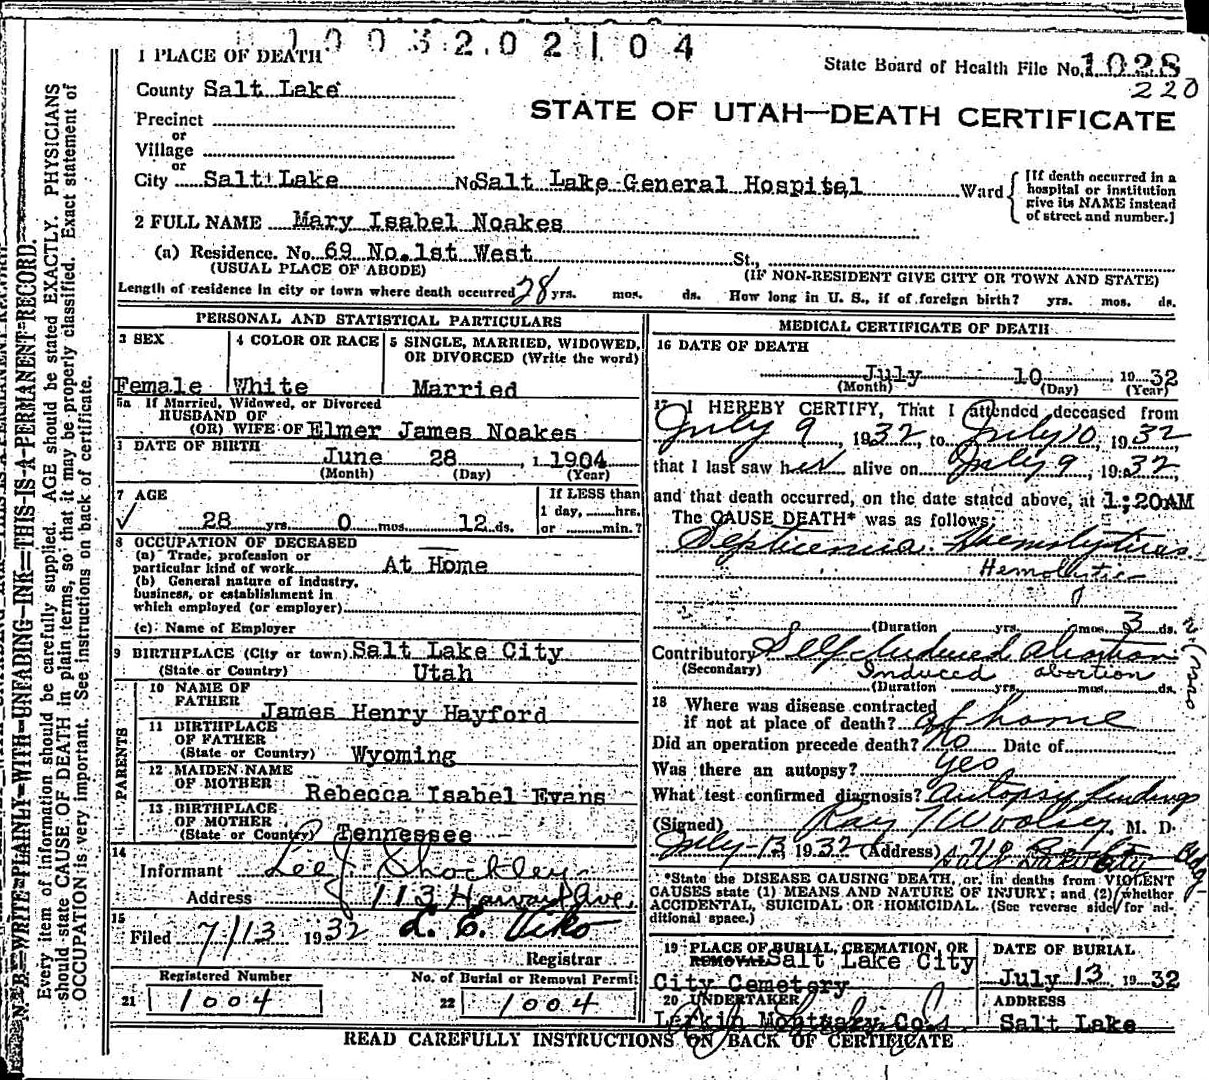 1003202104
1 PLACE OF DEATH
State Board of Health File No. 1028
220
County Salt Lake
STATE OF UTAH—DEATH CERTIFICATE
Precinct
or
Village
or
City Salt Lake No. Salt Lake General Hospital, Ward
[If death occurred in a hospital or institution give its NAME instead of street and number.]
2 FULL NAME Mary Isabel Noakes
(a) Residence. No. 69 No. 1st West St.,
(USUAL PLACE OF ABODE) (IF NON-RESIDENT GIVE CITY OR TOWN AND STATE)
Length of residence in city or town where death occurred 28 yrs. mos. ds. How long in U. S., if of foreign birth? yrs. mos. ds.
PERSONAL AND STATISTICAL PARTICULARS
3 SEX 4 COLOR OR RACE 5 SINGLE, MARRIED, WIDOWED, OR DIVORCED (Write the word)
Female White Married
5a If Married, Widowed, or Divorced
HUSBAND OF
(OR) WIFE OF Elmer James Noakes
DATE OF BIRTH
June 28, 1904
(Month) (Day) (Year)
7 AGE
If LESS than
1 day, hrs.
or min.?
28 yrs. 0 mos. 12 ds.
8 OCCUPATION OF DECEASED
(a) Trade, profession or
particular kind of work At Home
(b) General nature of industry,
business, or establishment in
which employed (or employer)
(c) Name of Employer
9 BIRTHPLACE (City or town) Salt Lake City
(State or Country) Utah
PARENTS
10 NAME OF
FATHER James Henry Hayford
11 BIRTHPLACE
OF FATHER
(State or Country) Wyoming
12 MAIDEN NAME
OF MOTHER Rebecca Isabel Evans
13 BIRTHPLACE
OF MOTHER
(State or Country) Tennessee
14
Informant Lee J Shockley
Address 113 Harvard Ave.
15
Filed 7/13 1932 L. E. Viko
Registrar
Registered Number No. of Burial or Removal Permit
21 1004 22 1004
MEDICAL CERTIFICATE OF DEATH
16 DATE OF DEATH
July 10, 1932
(Month) (Day) (Year)
17 I HEREBY CERTIFY, That I attended deceased from
July 9, 1932, to July 10, 1932
that I last saw her alive on July 9, 1932,
and that death occurred, on the date stated above, at 1:20AM
The CAUSE DEATH* was as follows:
Septicemia. Haemolyticus
Hemolytic
(Duration yrs. mos. 3 ds.
Contributory Self Induced abortion
(Secondary) Induced abortion
(Duration yrs. mos. ds.
18 Where was disease contracted
if not at place of death? at home
Did an operation precede death? No Date of
Was there an autopsy? yes
What test confirmed diagnosis? Autopsy findings
(Signed) Ray T Woolsey M. D.
July 13 1932 (Address) Bldg
Salt Lake City
*State the DISEASE CAUSING DEATH, or, in deaths from VIOLENT
CAUSES state (1) MEANS AND NATURE OF INJURY; and (2) whether
ACCIDENTAL, SUICIDAL OR HOMICIDAL. (See reverse side for additional space.)
19 PLACE OF BURIAL, CREMATION, OR REMOVAL Salt Lake City
City Cemetery
DATE OF BURIAL
July 13 1932
20 UNDERTAKER
Larkin Mortuary Co.
ADDRESS
Salt Lake
READ CAREFULLY INSTRUCTIONS ON BACK OF CERTIFICATE
N. B.—WRITE PLAINLY—WITH—UNFADING—INK—THIS—IS—A—PERMANENT—RECORD.
Every item of information should be carefully supplied. AGE should be stated EXACTLY. PHYSICIANS
should state CAUSE OF DEATH in plain terms, so that it may be properly classified. Exact statement of
OCCUPATION is very important. See instructions on back of certificate.